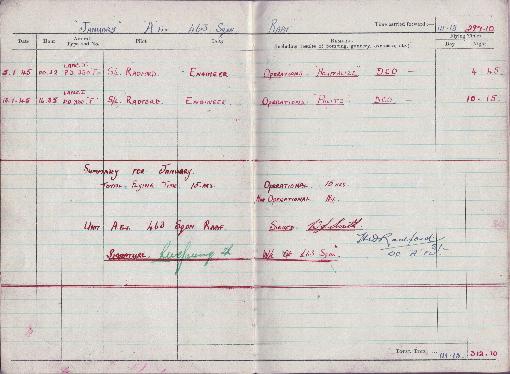 "JANUARY" "A" FLT 463 SQDN RAAF Time carried forward:— 111·15 297·10
Date Hour Aircraft Type and No. Pilot Duty Remarks (including results of bombing, gunnery, exercises, etc.) Flying Times
Day Night
LANC. I
PD 330 "F" S/L RADFORD ENGINEER OPERATIONS DCO — 4·45
LANC. I
S/L RADFORD ENGINEER OPERATIONS "POLITZ" DCO — 10·15
SUMMARY FOR JANUARY.
TOTAL FLYING TIME 15 HRS. OPERATIONAL 15 HRS.
NON OPERATIONAL NIL.
UNIT A FLT. 463 SQDN RAAF. SIGNED
SIGNATURE W/C OC 463 SQDN
OC A FLT
TOTAL TIME 111·15 312·10